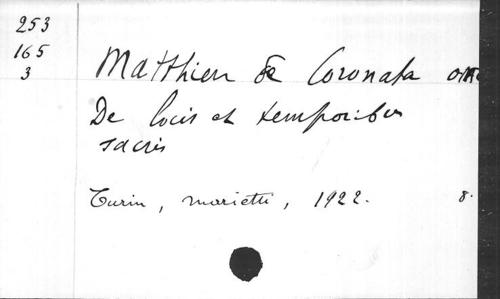 253
165
3
Matthieu de Coronata
De locis et temporibus
sacris
Turin, Marietti, 1922. 8.